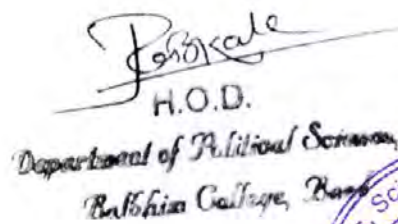 H.O.D.
Department of Political Science,
Balbhim College, Beed
Sci